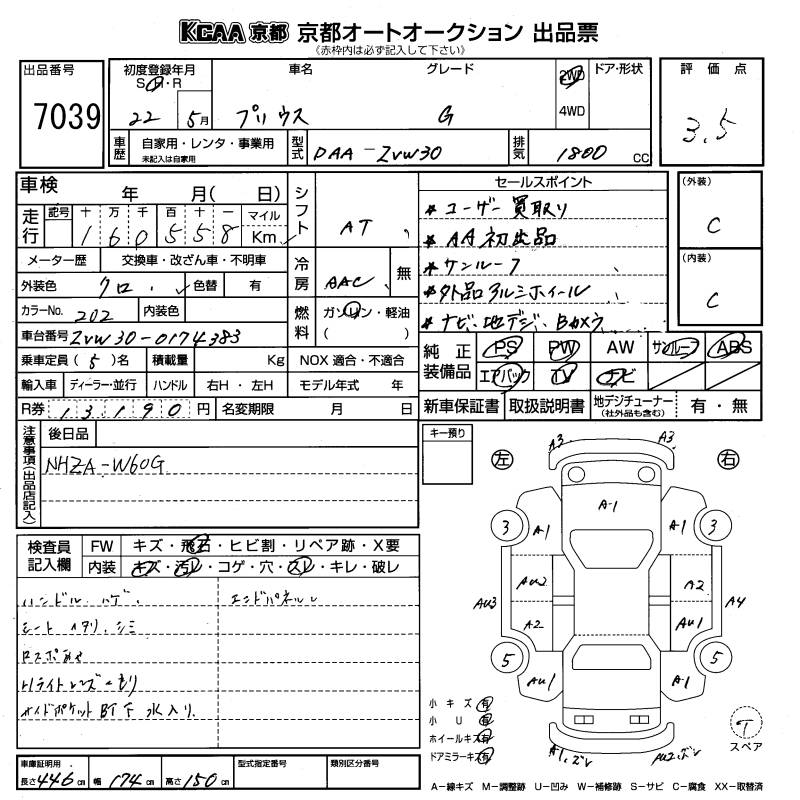 KCAA 京都 京都オートオークション 出品票
《赤枠内は必ず記入して下さい》
出品番号 7039
初度登録年月 S・H・R 22 5月
車名 プリウス
グレード G
2WD 4WD
ドア・形状
評価点 3.5
車歴 自家用・レンタ・事業用 未記入は自家用
型式 DAA-ZVW30
排気 1800 CC
車検 年 月( 日)
走行 記号 十 万 千 百 十 一 マイル Km
1 6 0 5 5 8
シフト AT
メーター歴 交換車・改ざん車・不明車
冷房 AAC 無
外装色 クロ 色替 有
カラーNo. 202 内装色
燃料 ガソリン・軽油 ( )
車台番号 ZVW30-0174383
乗車定員 (5)名 積載量 Kg NOX 適合・不適合
輸入車 ディーラー・並行 ハンドル 右H・左H モデル年式 年
R券 13,190円 名変期限 月 日
セールスポイント
* ユーザー買取り
* AA初出品
* サンルーフ
* 外品アルミホイール
* ナビ・地デジ・Bカメラ
(外装) C
(内装) C
純正装備品 PS PW AW サンルーフ ABS
エアバック TV ナビ
新車保証書 取扱説明書 地デジチューナー (社外品も含む) 有・無
注意事項(出品店記入) 後日品
NHZA-W60G
キー預り
左 右
A3 A3
A-1
3 A1 A-1 3
AU2 A2
AU3 A4
A2 AU1
5 AU1 A-1 5
A1,ズレ AU2,ズレ
検査員記入欄 FW キズ・飛石・ヒビ割・リペア跡・X要
内装 キズ・汚レ・コゲ・穴・スレ・キレ・破レ
ハンドルハゲ エンドパネルし
シートヘタリ、シミ
Hライトレンズくもり
サイドポケット 水入り
小キズ 有
小U 有
ホイールキズ 有
ドアミラーキズ 有
T スペア
車庫証明用 長さ446cm 幅174cm 高さ150cm
型式指定番号 類別区分番号
A-線キズ M-調整跡 U-凹み W-補修跡 S-サビ C-腐食 XX-取替済